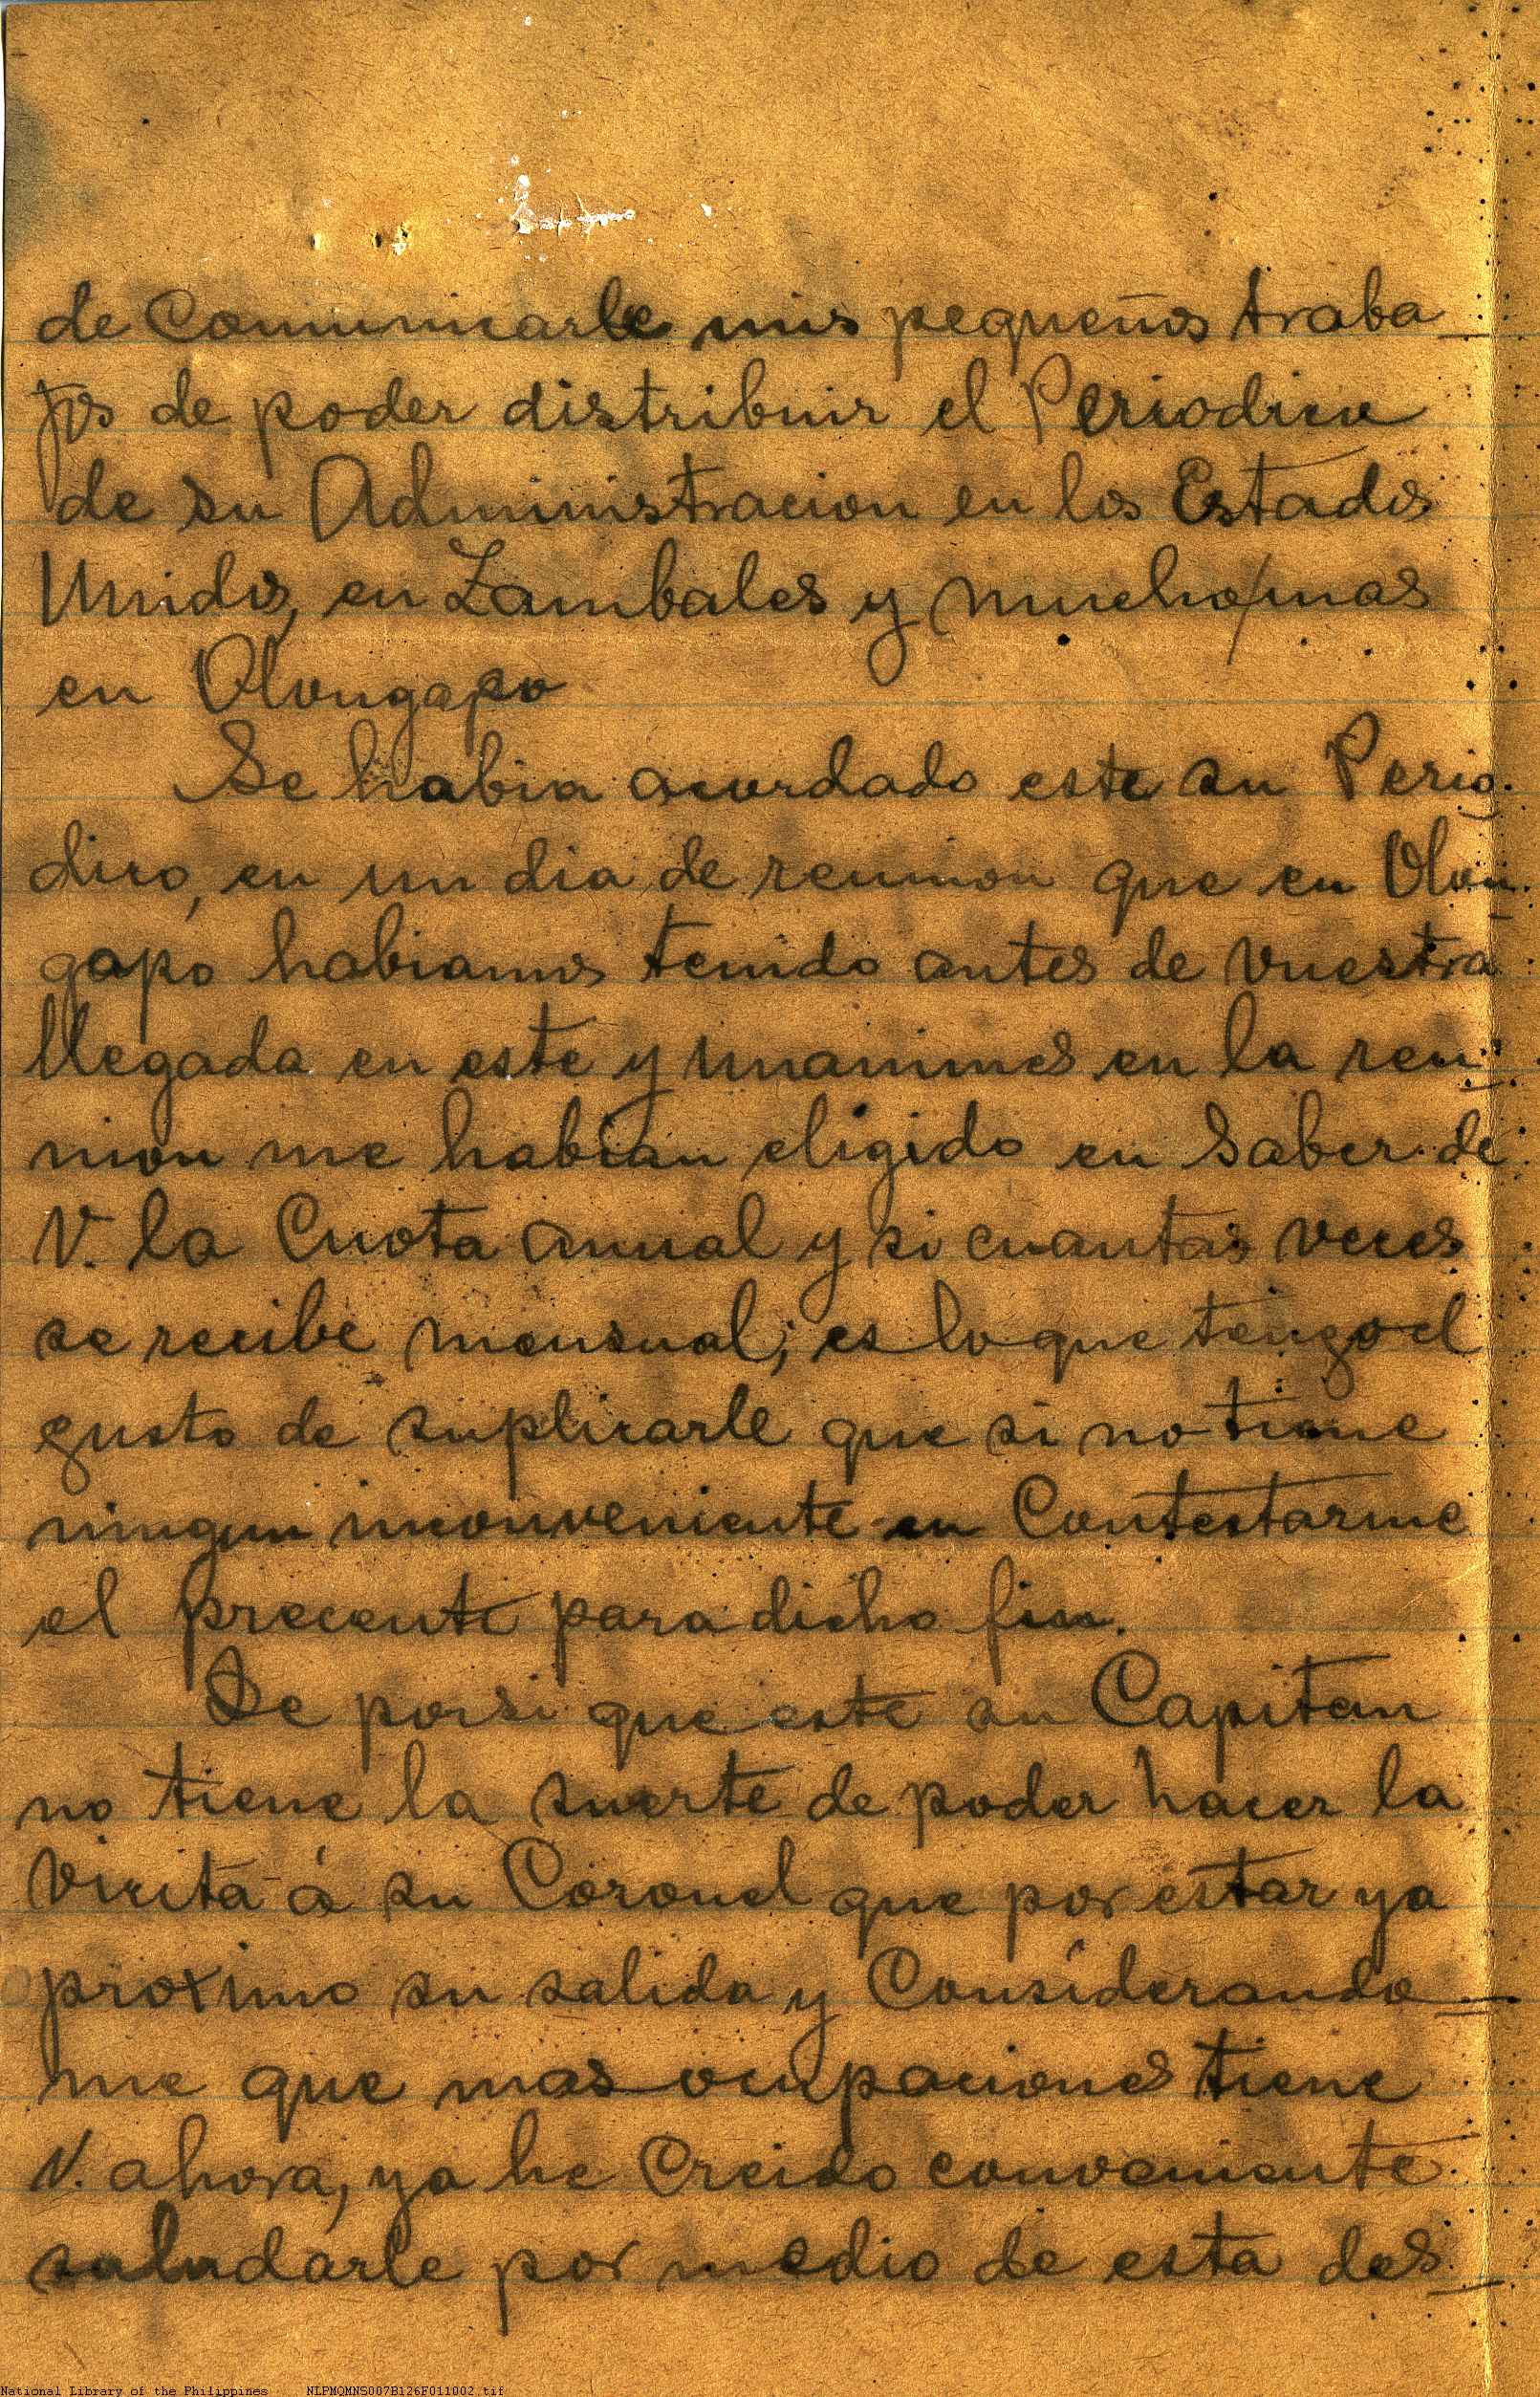 de Comunicarle mis pequeños traba_
jos de poder distribuir el Periodico
de su Administracion en los Estados
Unidos, en Zambales y mucho/mas
en Olongapo
Se habia acordado este su Perio-
dico, en un dia de reunion que en Olon-
gapo habiamos tenido antes de vuestra
llegada en este y unanimes en la reu-
nion me habian eligido en Saber de
V. la Cuota anual y si cuantas veces
se recibe mensual; es lo que tengo el
gusto de suplicarle que si no tiene
ningun inconveniente en Contestarme
el precente para dicho fin.
De porsi que este su Capitan
no tiene la suerte de poder hacer la
Vicita á su Coronel que por estar ya
proximo su salida y Considerando_
me que mas ocupaciones tiene
V. ahora, ya he Creido conveniente
saludarle por medio de esta des_
National Library of the Philippines NLPMQMNS007B126F011002.tif